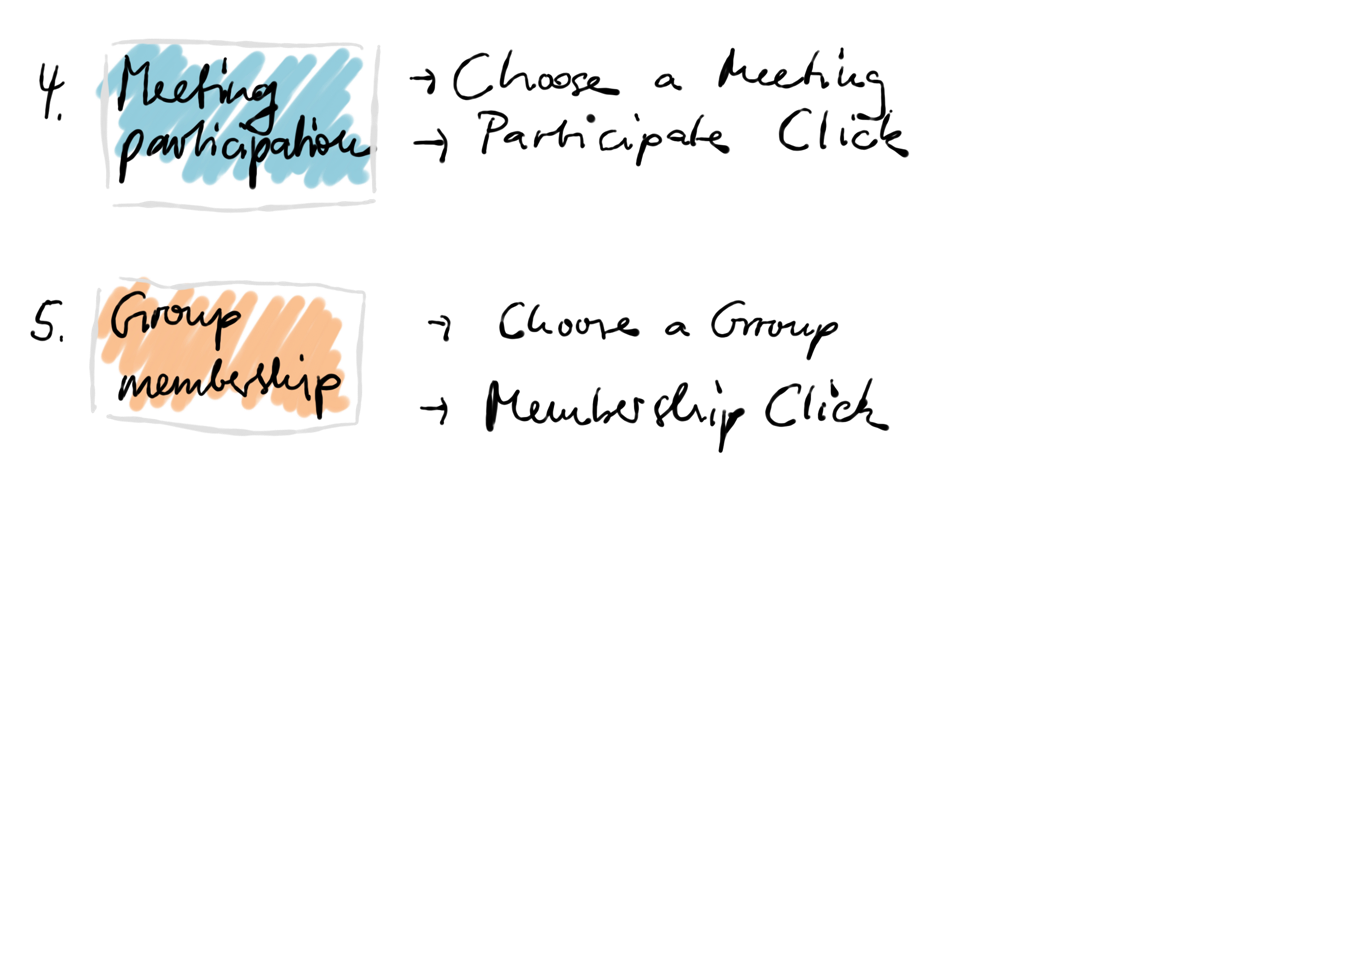 4. Meeting participation
→ Choose a Meeting
→ Participate Click
5. Group membership
→ Choose a Group
→ Membership Click